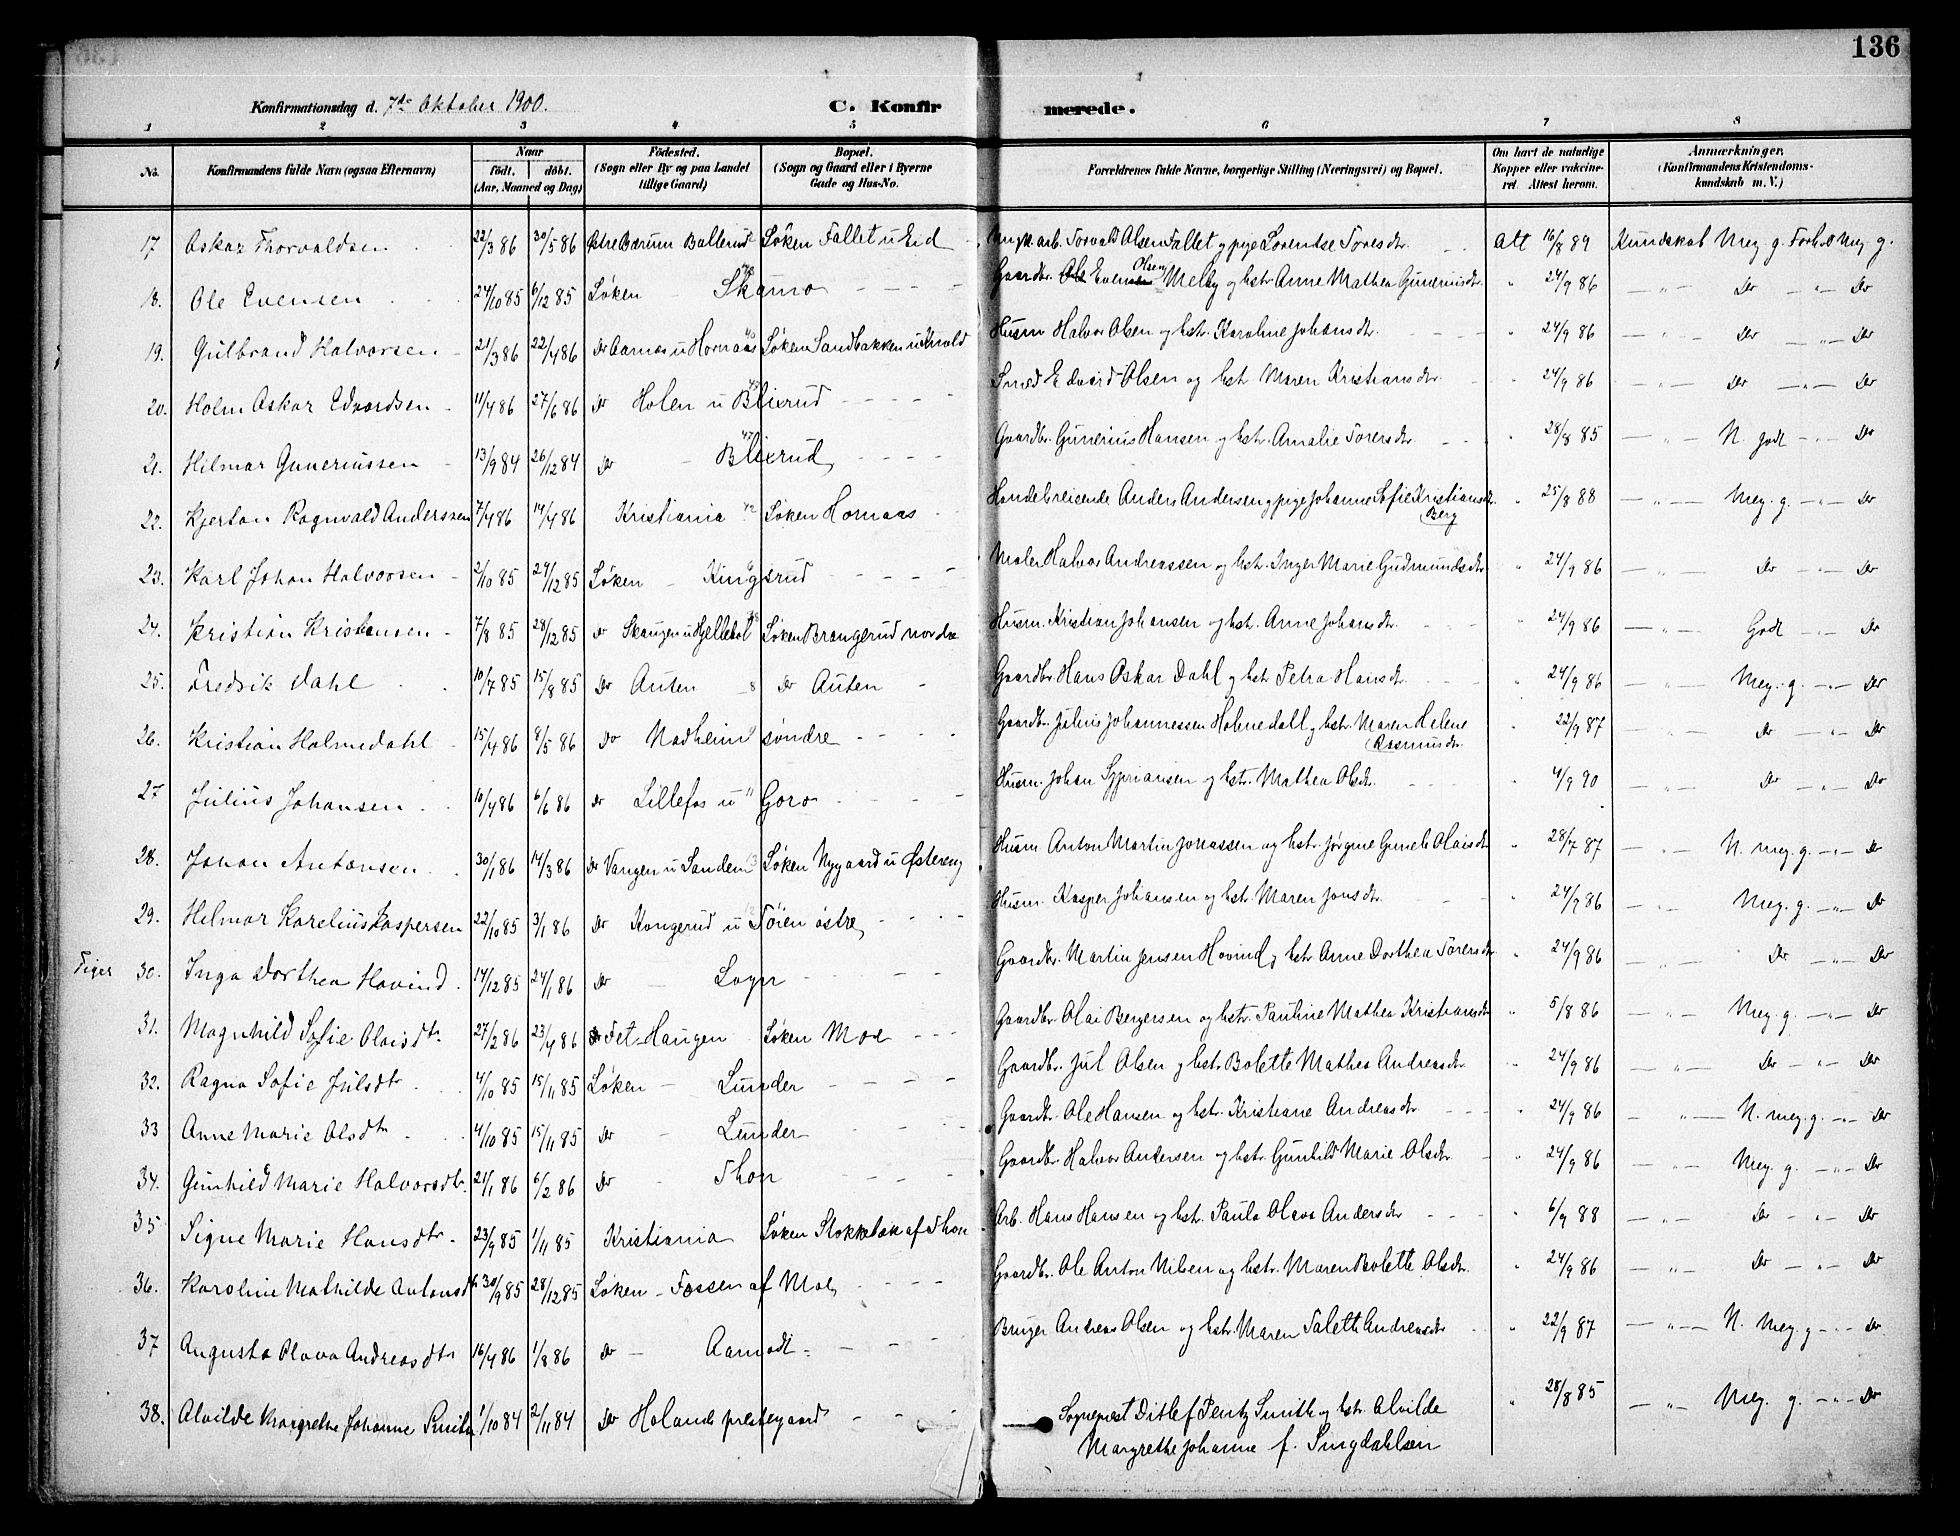 136
Konfirmationsdag d. 7de Oktober 1900. C. Konfirmerede.
1 2 3 4 5 6 7 8
No. Konfirmandens fulde Navn (ogsaa Efternavn) Naar födt. döbt. (Aar, Maaned og Dag) Födested. (Sogn eller By og paa Landet tillige Gaard) Bopæl. (Sogn og Gaard eller i Byerne Gade og Hus-No. Forældrenes fulde Navne, borgerlige Stilling (Næringsvei) og Bopæl. Om havt de naturlige Kopper eller vakcineret. Attest herom. Anmærkninger. (Konfirmandens Kristendomskundskab m. V.)
17. Oskar Thorvaldsen 22/3 86 30/5 86 Østre Bærum Ballerud Løken Fallet u Eid Ungk. arb. Torvald Olsen Fallet og pige Lorentse Toresdtr. Att 16/8 89 Kundskab Meg. g. Forhol Meg g.
18. Ole Evensen 24/10 85 6/12 85 Løken Skamo Gaardbr. Even Olsen Melby og hstr. Anne Mathea Gunerius dtr. " 24/9 86 — " — Do — " — Do
19. Gulbrand Halvorsen 21/3 86 22/4 86 Do Aamos u Hornaas 40 Løken Sandbakken u Husm Halvor Olsen og hstr. Karoline Johansdtr. " 24/9 86 — " — Do — " — Do
20. Holm Oskar Edvardsen 11/4 86 27/6 86 Do Holen u Blixrud Smed Edvard Olsen og hstr Maren Kristiansdtr. " 24/9 86 — " — Do — " — Do
21. Hilmar Guneriussen 13/9 84 26/12 84 Do 47 Blixrud Gaardbr. Gunerius Hansen og hstr. Amalie Toresdtr " 28/8 85 — " — N. godt — " — Do
22. Kjerton Ragnvald Anderssen 7/4 86 14/4 86 Kristiania 42 Løken Hornaas Handelsreisende Anders Andersen og pige Johanne Sofie Kristiansdtr. Berg " 25/8 88 — " — Meg. g. — " — Do
23. Karl Johan Halvorsen 2/10 85 24/12 85 Løken Kingsrud Maler Halvor Andreassen og hstr. Inger Marie Gudmundsdtr " 24/9 86 — " — Do — " — Do
24. Kristian Kristiansen 7/8 85 28/12 85 Do Skaugen u Hjellebøl Løken Brangerud nordre Husm. Kristian Johansen og hstr. Anne Johansdtr. 24/9 86 — " — Godt — " — Do
25. Fredrik Dahl 10/7 85 15/8 85 Do Auten 8 Do Auten Gaardbr Hans Oskar Dahl og hstr Petra Hansdtr. " 24/9 86 — " — Meg. g. — " — Do
26. Kristian Holmedahl 15/4 86 8/5 86 Do Nadheim søndre Gaardbr. Julius Johannessen Holmedall og hstr. Maren Helene Rasmusdtr. " 22/9 87 — " — Do — " — Do
27 Julius Johansen 10/4 86 6/6 86 Do Lillefos u Goro Husm. Johan Syprianssen og hstr. Mathea Olsdtr. " 4/9 90 — " — Do — " — Do
28. Johan Antonsen 30/1 86 14/3 86 Do Vangen u Sandem 13 Løken Nygaard u Østereng Husm Anton Martin Jonassen og hstr. Jørgine Gunele Olaisdtr " 28/7 87 — " — N. meg. g. — " — Do
29. Hilmar Karelius Kaspersen 22/10 85 3/1 86 Do Kongerud u Tøien østre Husm. Kasper Johansen og hstr. Maren Jonsdtr. " 24/9 86 — " — Meg. g. — " — Do
Piger 30. Inga Dorthea Hovind. 14/12 85 24/1 86 Do — Logn Gaardbr. Martin Jensen Hovind og hstr Anne Dorthea Toresdtr " 24/9 86 — " — Do — " — Do
31. Magnhild Sofie Olaisdtr. 27/2 86 23/4 86 Fet-Haugen Løken Moe Gaardbr. Olai Bergersen og hstr. Pauline Mathea Kristiansdtr " 5/8 86 — " — Meg. g. — " — Do
32. Ragna Sofie Julsdtr. 4/10 85 15/11 85 Løken — Lunder Gaardbr. Jul Olsen og hstr. Bolette Mathea Andreasdtr " 24/9 86 — " — Do — " — Do
33 Anne Marie Olsdtr. 4/10 85 15/11 85 Do — Lunder Gaardbr. Ole Hansen og hstr. Kristiane Andreasdtr " 24/9 86 — " — N. meg. g. — " — Do
34. Gunhild Marie Halvorsdtr. 21/1 86 6/2 86 Do Thon Gaardbr. Halvor Andersen og hstr. Gunhild Marie Olsdtr. " 24/9 86 — " — Meg g. — " — Do
35 Signe Marie Hansdtr. 23/9 85 1/11 85 Kristiania Løken Stokkebæk af Thon Arb. Hans Hansen og hstr. Paula Olava Andersdtr " 6/9 88 — " — Do — " — Do
36. Karoline Mathilde Antonsdtr 30/9 85 28/12 85 Løken - Fossen af Moe Gaardbr. Ole Anton Nilsen og hstr. Maren Bolette Olsdtr. " 24/9 86 — " — Do — " — Do
37 Augusta Olava Andreasdtr 16/4 86 1/8 86 Do — Aamodt Bruger Andreas Olsen og hstr. Maren Taletta Andreasdtr " 22/9 87 — " — N. Meg. g — " — Do
38. Alvilde Margrethe Johanne Smith 1/10 84 2/11 84 Do Hølands prestegaard Sogneprest Ditlef Pentz Smith og hstr. Alvilde " 28/8 85 — " — Meg. g. — " — Do
Margrethe Johanne f. Smgdahlsen